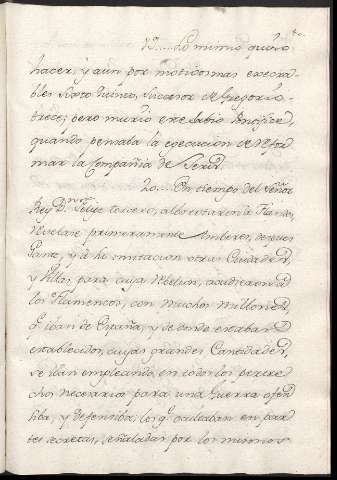 19.... Lo mismo quiso
hacer, y aun por motivos mas execra
bles Sixto Quinto, subcesor de Gregorio
trece; pero murio este sabio Pontifice,
quando pensaba la egecucion de refor
mar la Compañia de Jesus.
20.... En tiempo del Señor
Rey Dn. Felipe tercero, alborotaron la Flandes
Revelase primeramente Amberes, despues
Gante, y á su imitacion otras Ciudades,
y Villas, para cuya rebelion, acudieron a
los Flamencos, con muchos millones,
q. iban de España, y de donde estaban
establecidos, cuyas grandes Cantidades,
se iban empleando, en todos los pertre
chos necesarios para una Guerra ofen
siba, y defensiba; los q. ocultaban en par
tes secretas, señaladas por los mismos